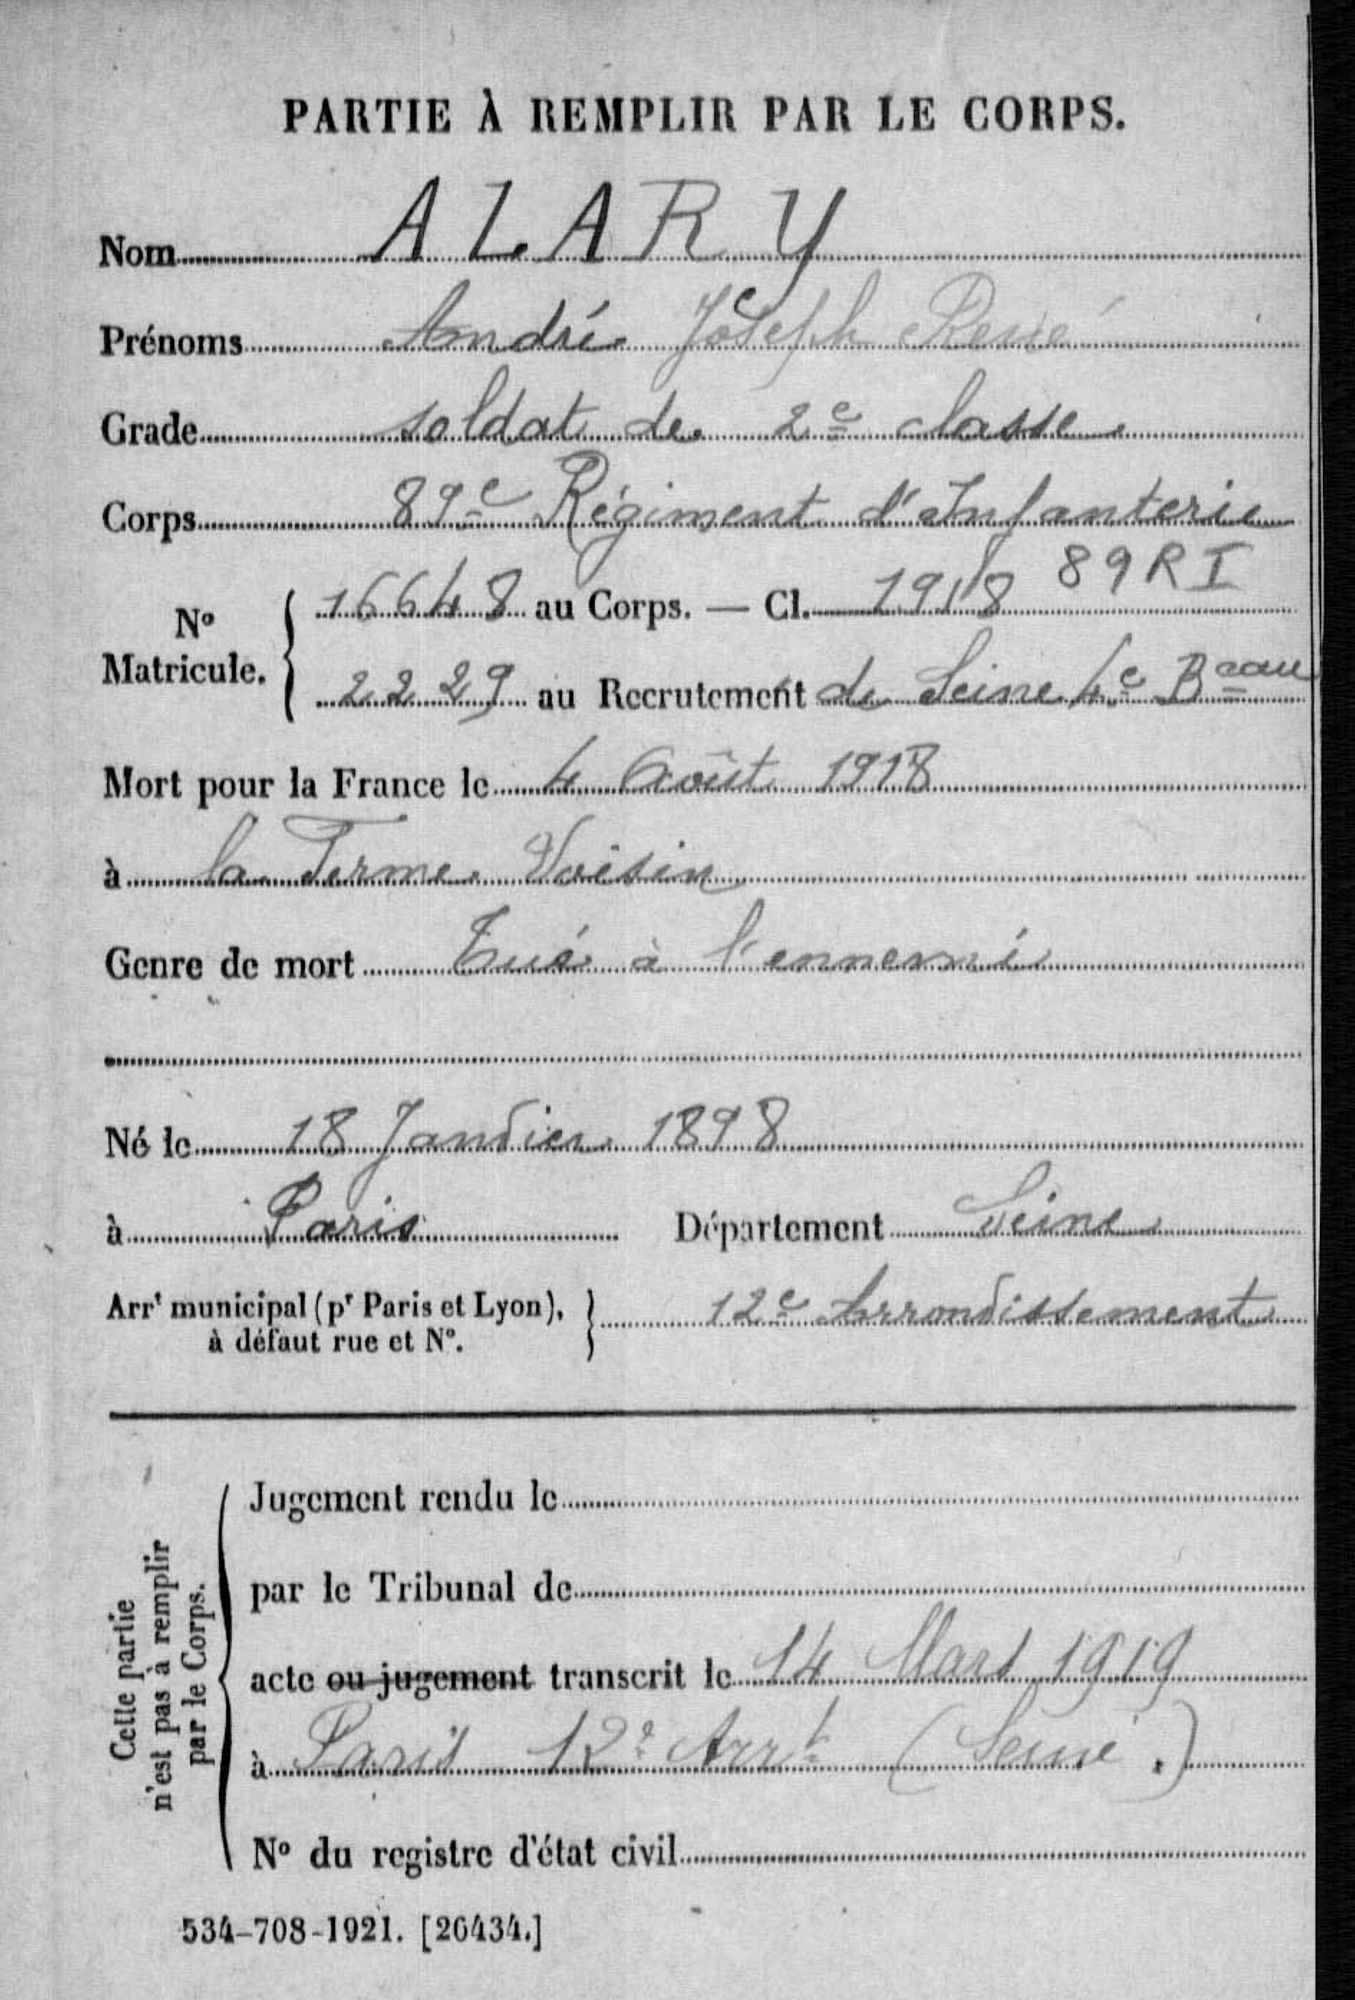 PARTIE À REMPLIR PAR LE CORPS.
Nom ALARY
Prénoms André Joseph René
Grade soldat de 2e classe
Corps 89e Régiment d'Infanterie
No Matricule. { 16648 au Corps. — Cl. 1918 89 R I
2229 au Recrutement de Seine 4e Beau
Mort pour la France le 4 Août 1918
à la Ferme Voisin
Genre de mort Tué à l'ennemi
Né le 18 Janvier 1898
à Paris Département Seine
Arrt municipal (pr Paris et Lyon), à défaut rue et No. } 12e Arrondissement
Cette partie n'est pas à remplir par le Corps.
Jugement rendu le
par le Tribunal de
acte ou jugement transcrit le 14 Mars 1919
à Paris 12e Arrt (Seine.)
No du registre d'état civil
534-708-1921. [26434.]